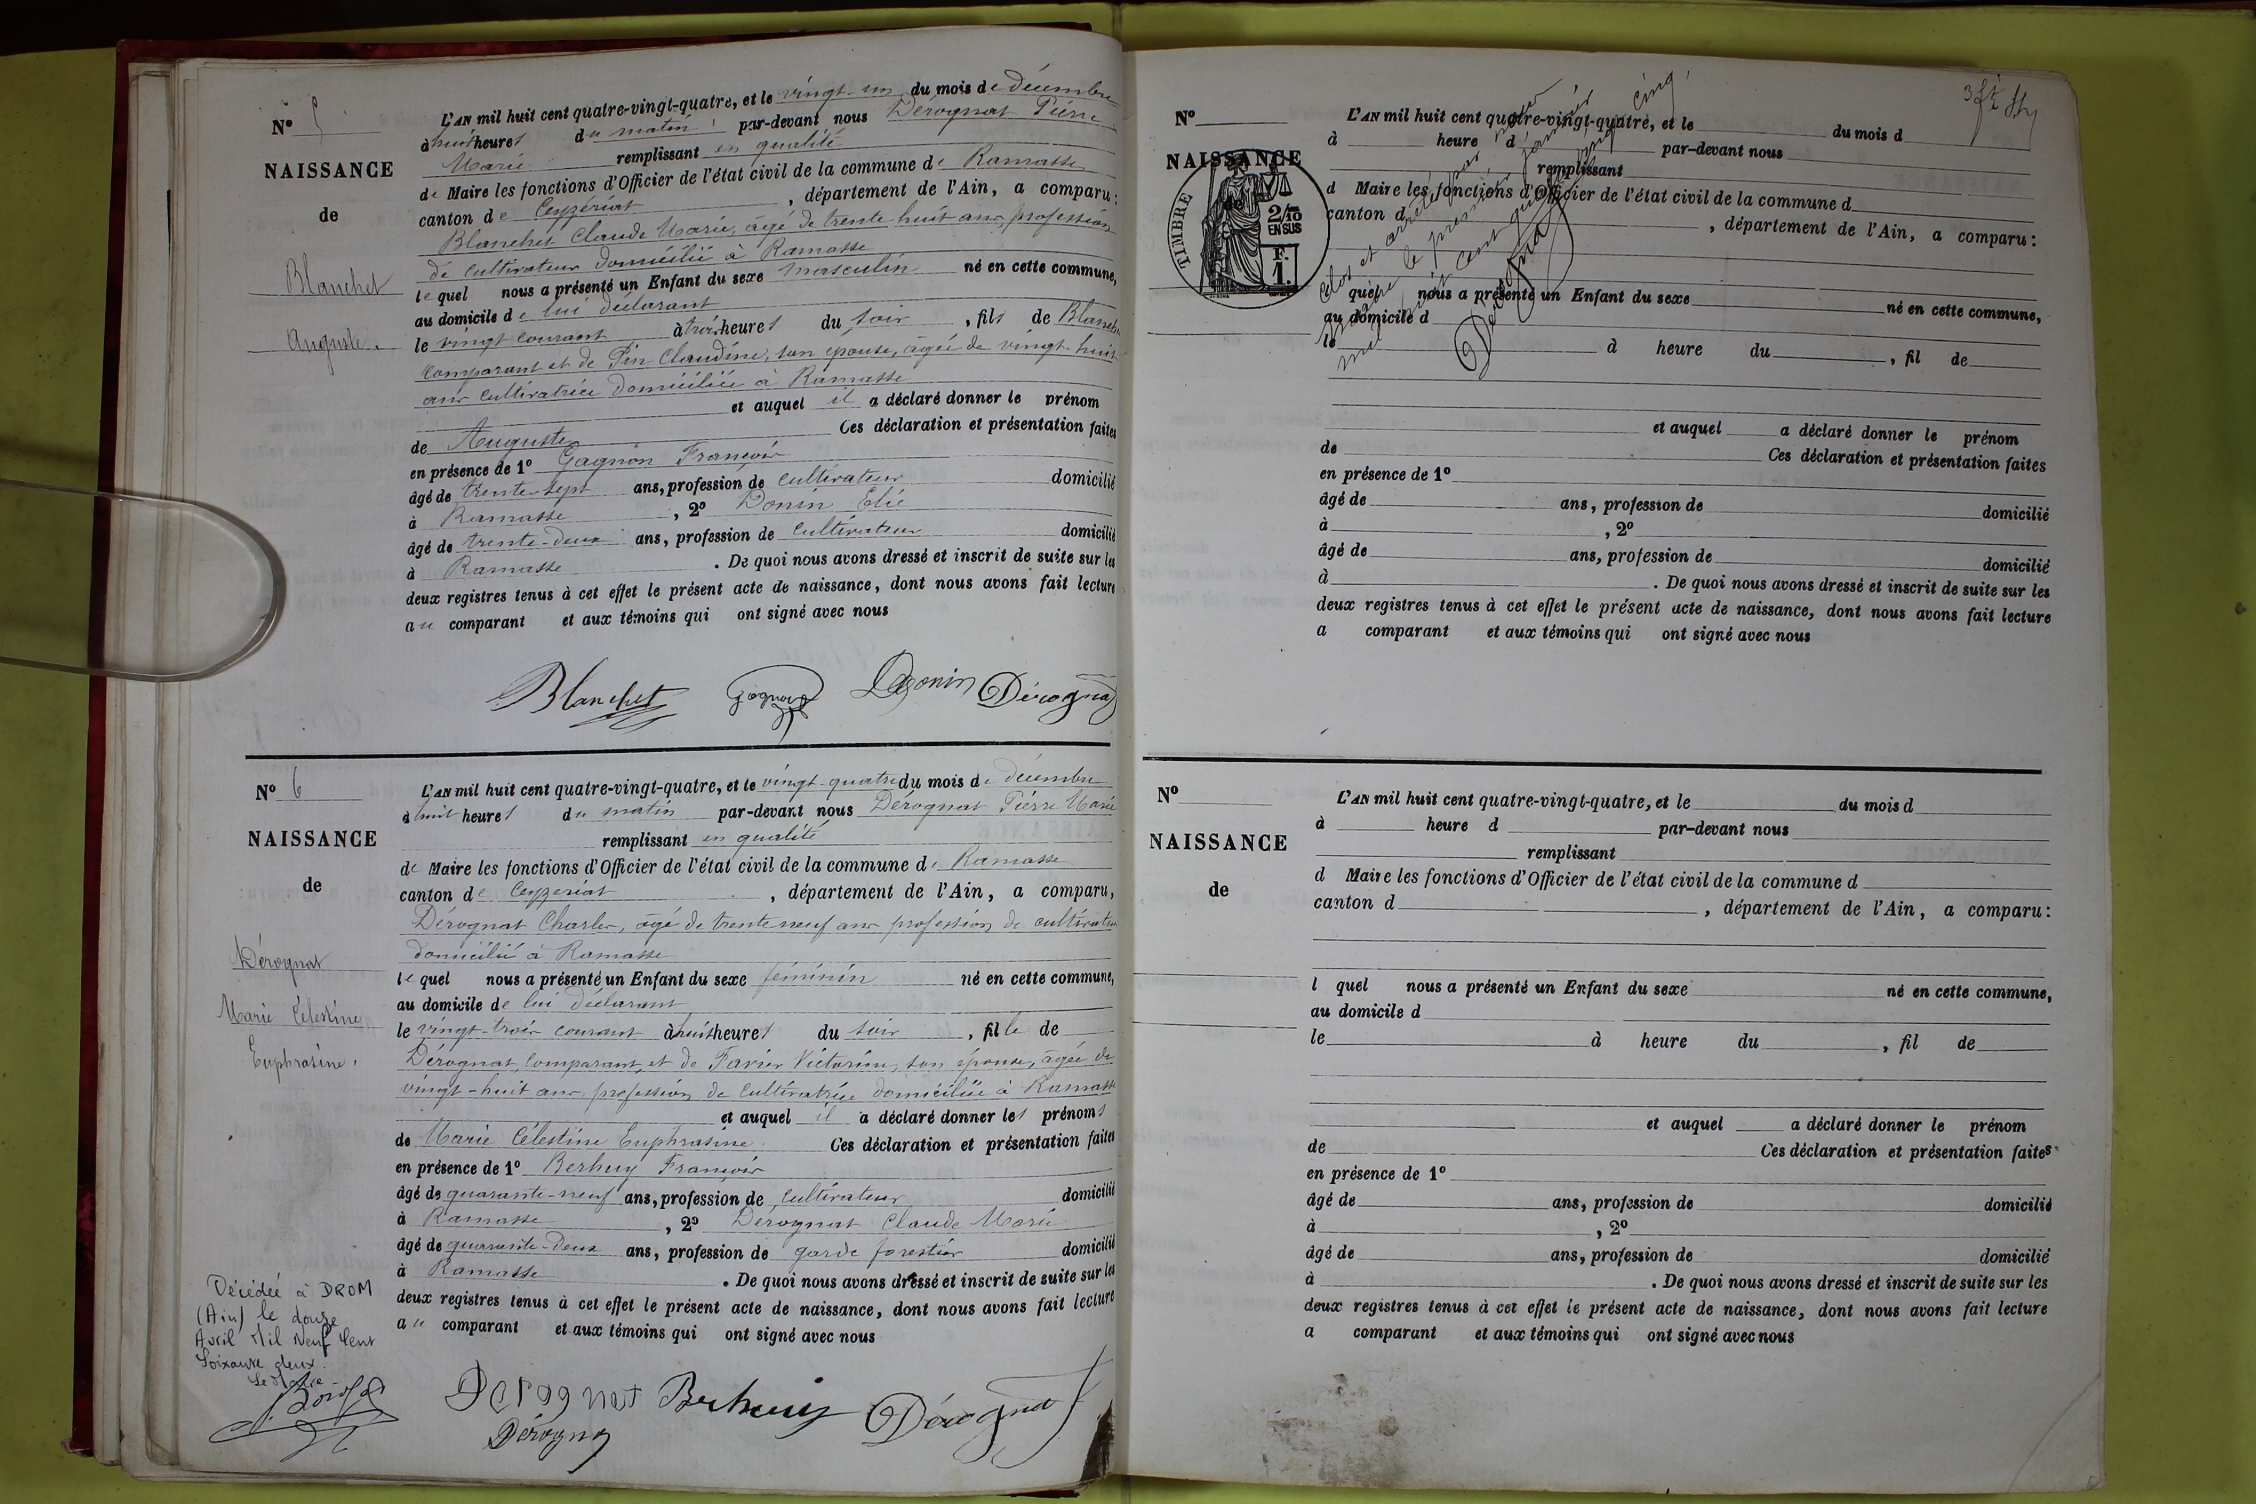 N° 5
NAISSANCE
de
Blanchet
Auguste.
L'AN mil huit cent quatre-vingt-quatre, et le vingt-un du mois de décembre
à huit heures du matin par-devant nous Dérognat Pierre
Marie remplissant en qualité
de Maire les fonctions d'Officier de l'état civil de la commune de Ramasse
canton de Ceyzériat, département de l'Ain, a comparu:
Blanchet Claude Marie, âgé de trente huit ans, profession
de cultivateur domicilié à Ramasse
lequel nous a présenté un Enfant du sexe masculin né en cette commune,
au domicile de lui déclarant
le vingt courant à trois heures du soir, fils de Blanchet
comparant et de Pin Claudine, son épouse, âgée de vingt-huit
ans cultivatrice domiciliée à Ramasse
et auquel il a déclaré donner le prénom
de Auguste Ces déclaration et présentation faites
en présence de 1° Gagnon François
âgé de trente-sept ans, profession de cultivateur domicilié
à Ramasse, 2° Donin Elie
âgé de trente-deux ans, profession de cultivateur domicilié
à Ramasse. De quoi nous avons dressé et inscrit de suite sur les
deux registres tenus à cet effet le présent acte de naissance, dont nous avons fait lecture
au comparant et aux témoins qui ont signé avec nous
Blanchet Gagnon Donin Dérognat
N° 6
NAISSANCE
de
Dérognat
Marie Célestine
Euphrasine.
L'AN mil huit cent quatre-vingt-quatre, et le vingt-quatre du mois de décembre
à huit heures du matin par-devant nous Dérognat Pierre Marie
remplissant en qualité
de Maire les fonctions d'Officier de l'état civil de la commune de Ramasse
canton de Ceyzeriat, département de l'Ain, a comparu,
Dérognat Charles, âgé de trente neuf ans profession de cultivateur
domicilié à Ramasse
lequel nous a présenté un Enfant du sexe féminin né en cette commune,
au domicile de lui déclarant
le vingt-trois courant à huit heures du soir, fille de
Dérognat, comparant, et de Favier Victorine, son épouse, âgée de
vingt-huit ans, profession de cultivatrice domiciliée à Ramasse
et auquel il a déclaré donner les prénoms
de Marie Célestine Euphrasine. Ces déclaration et présentation faites
en présence de 1° Berhuy François
âgé de quarante-neuf ans, profession de cultivateur domicilié
à Ramasse, 2° Dérognat Claude Marie
âgé de quarante-deux ans, profession de garde forestier domicilié
à Ramasse. De quoi nous avons dressé et inscrit de suite sur les
deux registres tenus à cet effet le présent acte de naissance, dont nous avons fait lecture
au comparant et aux témoins qui ont signé avec nous
Décédée à DROM
(Ain) le douze
Avril Mil Neuf Cent
Soixante deux.
Le Maire
Derognat Berhuy Dérognat
Dérognat
N°
NAISSANCE
de
TIMBRE
2/10
EN SUS
F.
1.
L'AN mil huit cent quatre-vingt-quatre, et le du mois d
à heure d par-devant nous
remplissant
d Maire les fonctions d'Officier de l'état civil de la commune d
canton d, département de l'Ain, a comparu:
quel nous a présenté un Enfant du sexe né en cette commune,
au domicile d
le à heure du, fil de
et auquel a déclaré donner le prénom
de Ces déclaration et présentation faites
en présence de 1°
âgé de ans, profession de domicilié
à, 2°
âgé de ans, profession de domicilié
à. De quoi nous avons dressé et inscrit de suite sur les
deux registres tenus à cet effet le présent acte de naissance, dont nous avons fait lecture
a comparant et aux témoins qui ont signé avec nous
Clos et arrêté par nous
maire le premier janvier
mil huit cent quatre vingt cinq
Dérognat
N°
NAISSANCE
de
L'AN mil huit cent quatre-vingt-quatre, et le du mois d
à heure d par-devant nous
remplissant
d Maire les fonctions d'Officier de l'état civil de la commune d
canton d, département de l'Ain, a comparu:
l quel nous a présenté un Enfant du sexe né en cette commune,
au domicile d
le à heure du, fil de
et auquel a déclaré donner le prénom
de Ces déclaration et présentation faites
en présence de 1°
âgé de ans, profession de domicilié
à, 2°
âgé de ans, profession de domicilié
à. De quoi nous avons dressé et inscrit de suite sur les
deux registres tenus à cet effet le présent acte de naissance, dont nous avons fait lecture
a comparant et aux témoins qui ont signé avec nous